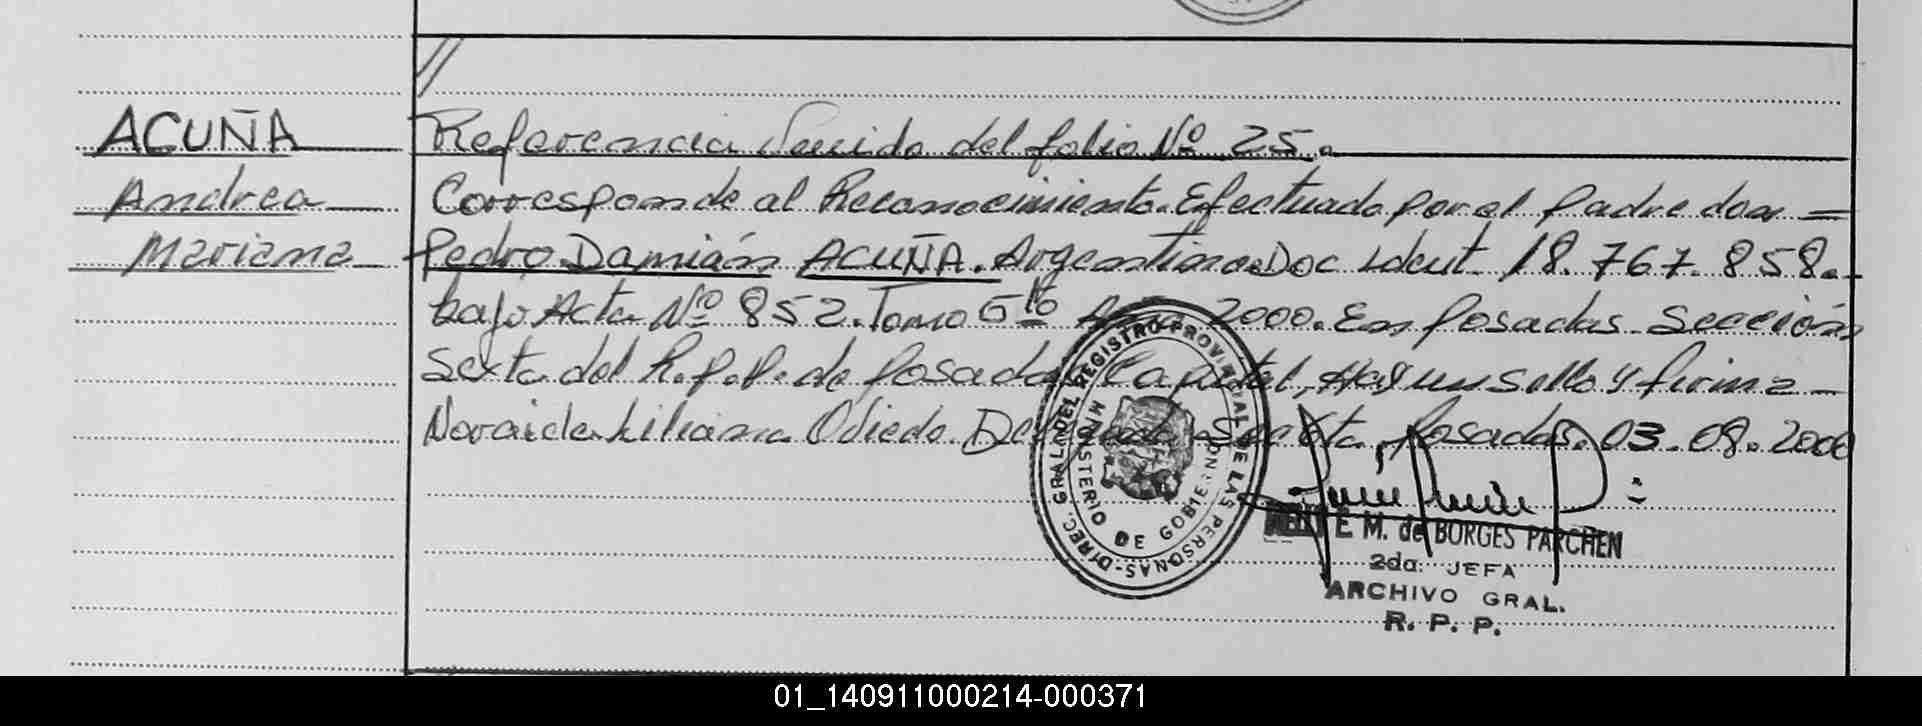 //
ACUÑA
Andrea
Mariana
Referencia Seuida del folio Nº 25.
Corresponde al Reconocimiento. Efectuado por el padre don =
Pedro Damián ACUÑA. Argentino. Doc Ident. 18.767.858.-
bajo Acta Nº 852. Tomo 6to 2000. En Posadas. Sección
Sexta del R.P.P. de Posadas Capital, Hay un sello y firma -
Liliana Oviedo. Posadas. 03.08.2000
DIREC. GRAL. DEL REGISTRO PROVINCIAL DE LAS PERSONAS-
MINISTERIO DE GOBIERNO
E. M. de BORGES PARCHEN
2da. JEFA
ARCHIVO GRAL.
R. P. P.
01_140911000214-000371